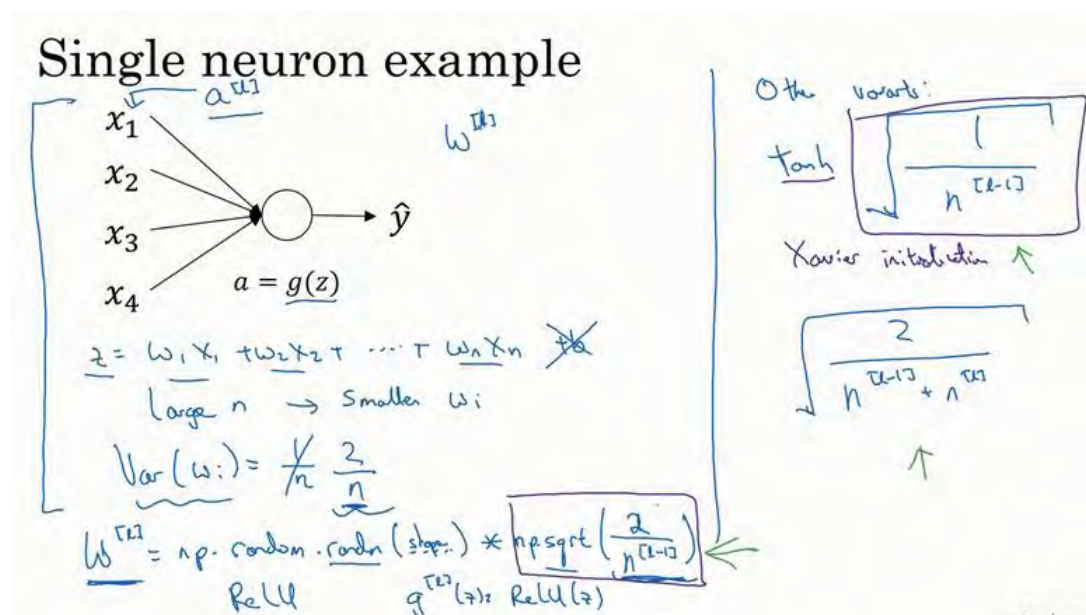 Single neuron example
a^[l]
x₁
x₂
x₃
x₄
ŷ
a = g(z)
W^[l]
z = w₁x₁ + w₂x₂ + ⋯ + wₙxₙ + b
Large n → Smaller wᵢ
Var(wᵢ) = 1/n 2/n
W^[l] = np.random.randn(shape) * np.sqrt(2/n^[l-1])
ReLU g^[l](z) = ReLU(z)
Other variants:
tanh √(1/n^[l-1])
Xavier initialization ↑
√(2/(n^[l-1] + n^[l]))
↑